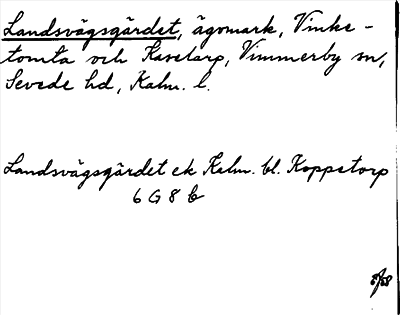 Landsvägsgärdet, ägomark, Vinke-
tomta och Kasetorp, Vimmerby sn,
Sevede hd, Kalm. l.
Landsvägsgärdet ek Kalm. bl. Koppetorp
6 G 8 b